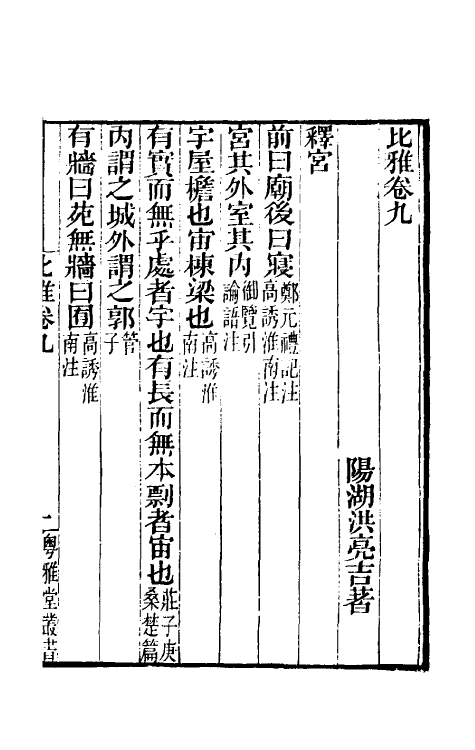 比雅卷九
陽湖洪亮吉著
釋宮
前曰廟後曰寢鄭元禮記注高誘淮南注
宮其外室其內御覽引論語注
宇屋檐也宙棟梁也高誘淮南注
有實而無乎處者宇也有長而無本剽者宙也莊子庚桑楚篇
內謂之城外謂之郭管子
有牆曰苑無牆曰囿高誘淮南注
比雅卷九 一 粵雅堂叢書